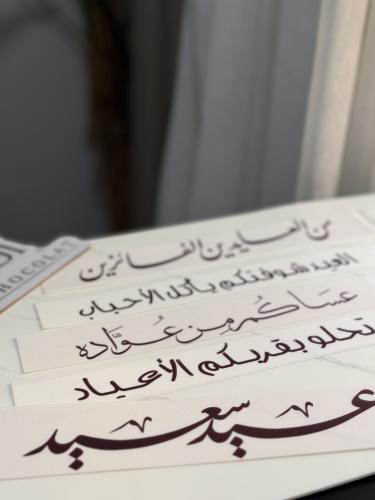 من العايدين الفائزين
العيد شوفتكم يا كل الأحباب
عساكم من عوّاده
تحلو بقربكم الأعياد
عيد سعيد
CHOCOLAT